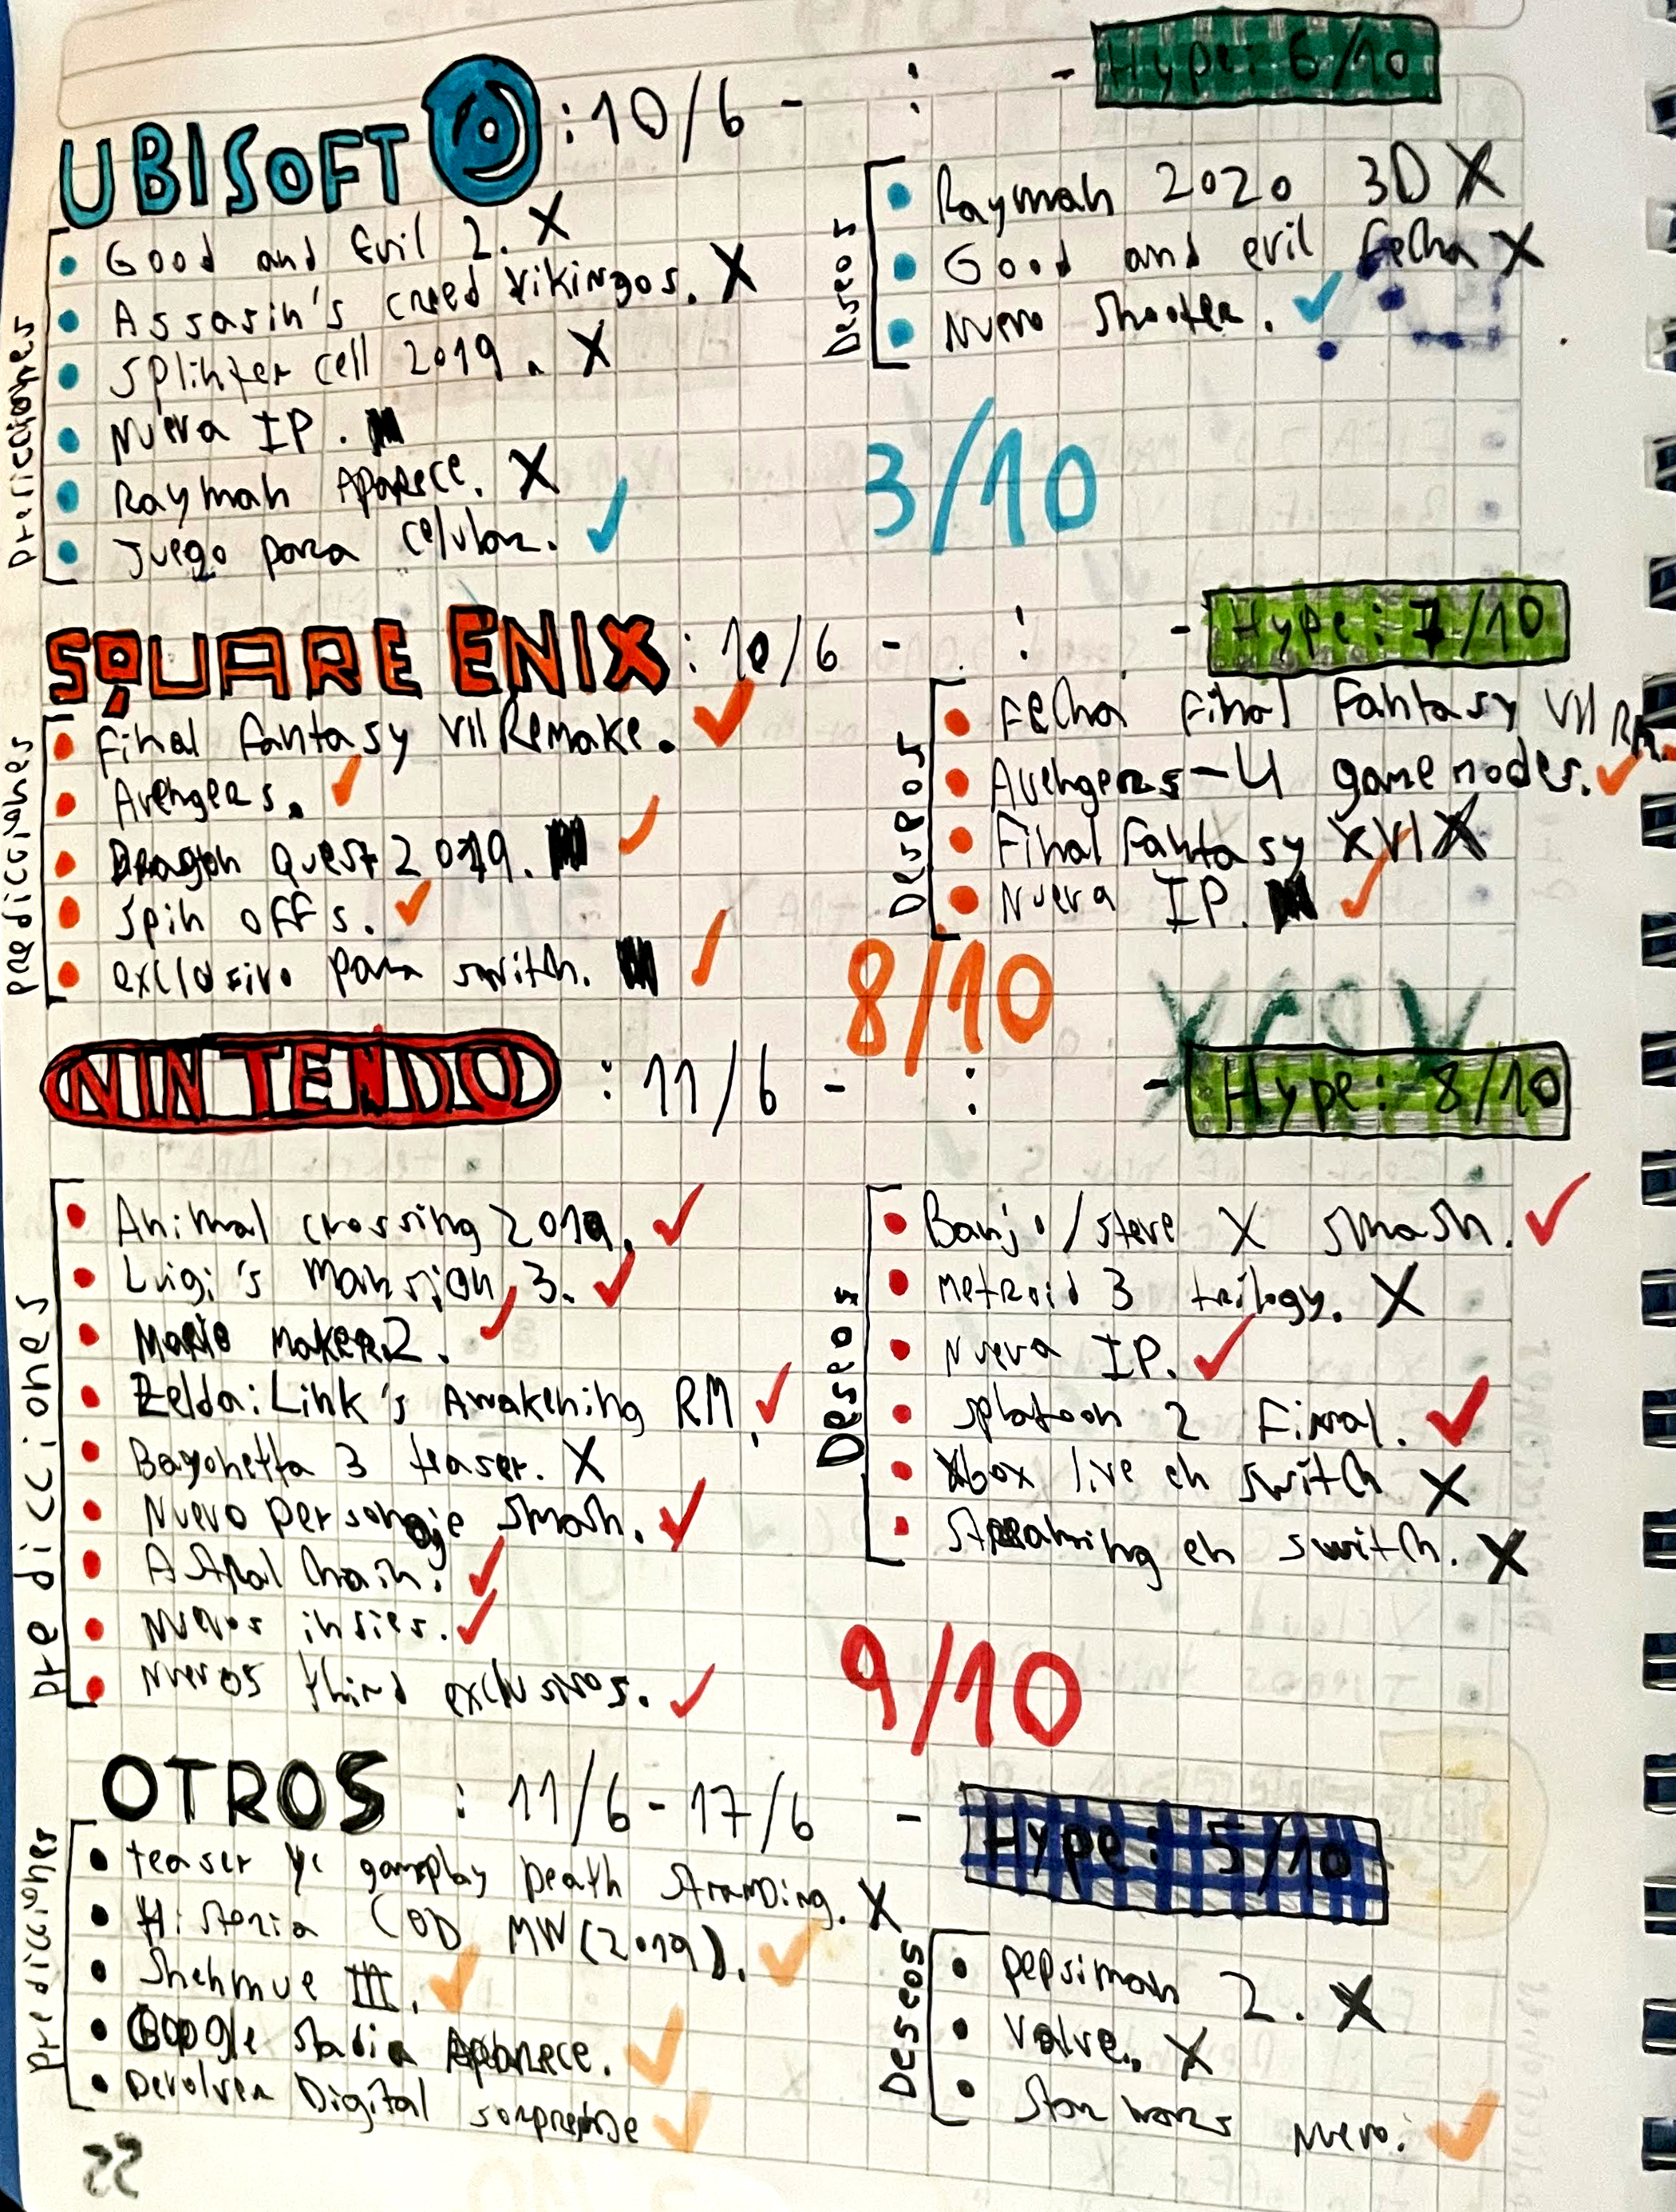 UBISOFT : 10/6 - : - Hype: 6/10
Predicciones
• Good and Evil 2. X
• Assasin's creed Vikingos. X
• Splinter cell 2019. X
• Nueva IP.
• Rayman Aparece. X
• Juego para celular. ✓
Deseos
• Rayman 2020 3D X
• Good and evil Fecha X
• Nuevo shooter. ✓
3/10
SQUARE ENIX : 10/6 - : - Hype: 7/10
predicciones
• Final Fantasy VII Remake. ✓
• Avengers. ✓
• Dragon Quest 2019. ✓
• Spin offs. ✓
• exclusivo para switch. ✓
Deseos
• Fecha Final Fantasy VII RM.
• Avengers - 4 game modes. ✓
• Final Fantasy XVI X
• Nueva IP. ✓
8/10
NINTENDO : 11/6 - : - Hype: 8/10
predicciones
• Animal crossing 2019. ✓
• Luigi's Mansion 3. ✓
• Mario Maker 2. ✓
• Zelda: Link's Awakening RM. ✓
• Bayonetta 3 teaser. X
• Nuevo personaje Smash. ✓
• Astral Chain. ✓
• Nuevos indies. ✓
• Nuevos third exclusivos. ✓
Deseos
• Banjo/Steve X Smash. ✓
• Metroid 3 trilogy. X
• Nueva IP. ✓
• Splatoon 2 Final. ✓
• Xbox live en switch X
• Streaming en switch. X
9/10
OTROS : 11/6 - 17/6 - Hype: 5/10
predicciones
• teaser gameplay Death Stranding. X
• Historia COD MW (2019). ✓
• Shenmue III. ✓
• Google Stadia Aparece. ✓
• Devolver Digital sorprende ✓
Deseos
• pepsiman 2. X
• Valve. X
• Star wars nuevo. ✓
22